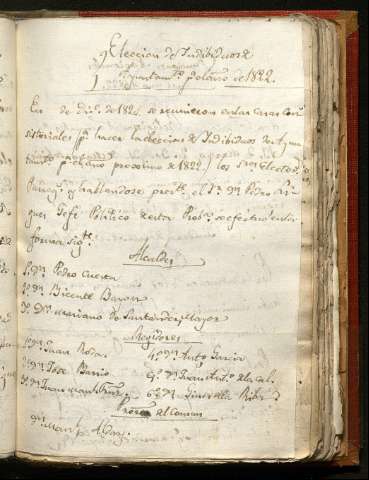 Eleccion de Indibiduos de
Ayuntam.to p.a el año de 1822.
En de dic.e de 1821 se reunieron en las Casas Con
sistoriales p.a hacer la eleccion de Indibiduos de Ayun
tam.to p.a el año proximo de 1822 los S.res Elect.s
Parroq.s y hallandose pres.te el S.r D.n Pedro
Gefe Politico de esta Prov.a se efectuó en la
forma sig.te
Alcaldes
1.o D.n Pedro Cuesta
2.o D.n Bicente Baron
3.o D.n Mariano de Santander, mayor
Regidores
1.o D.n Juan Roda 4.o D.n Ant.o Garcia
2.o D.n Jose Bario 5.o D.n Juan Ant.o
3.o D.n Juan 6.o D.n de la Riba
Proc.r del Comun